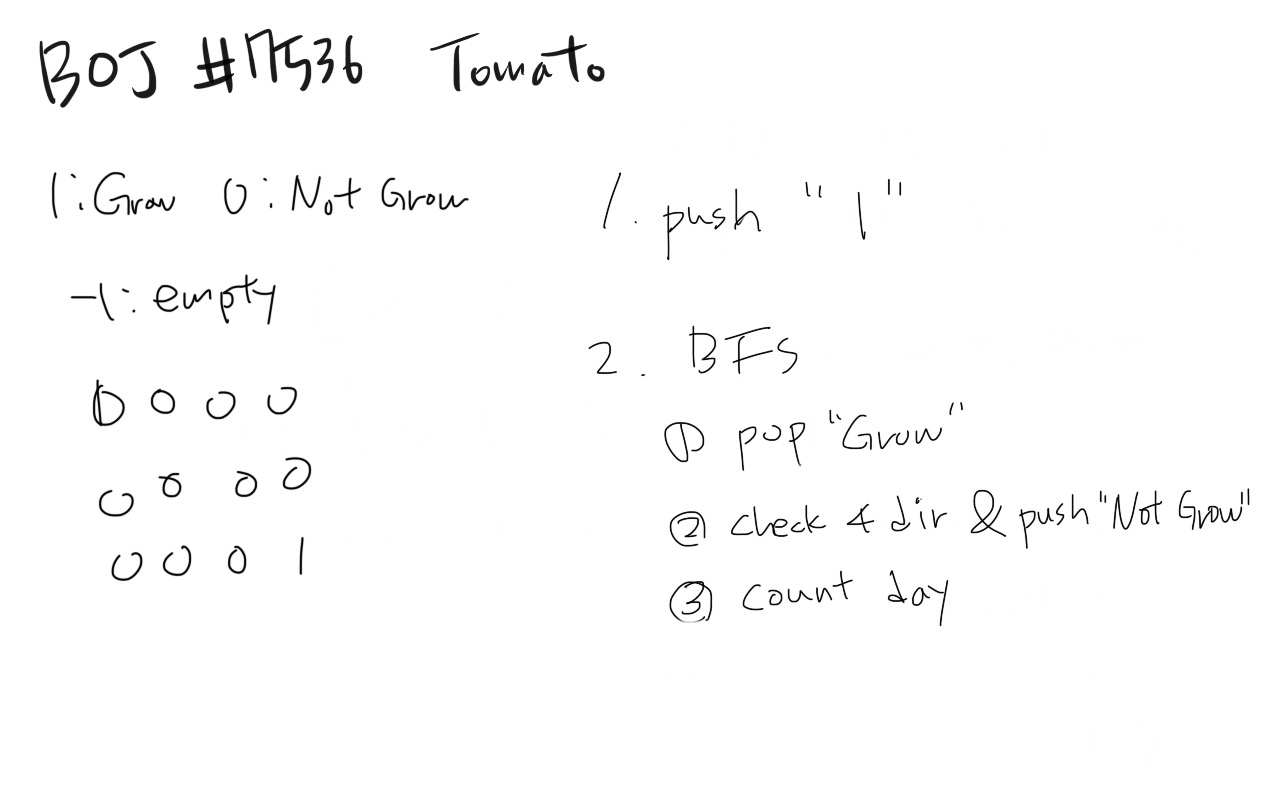 BOJ #17536 Tomato
1: Grow 0: Not Grow
-1: empty
0 0 0 0
0 0 0 0
0 0 0 1
1. push "1"
2. BFS
① pop "Grow"
② check 4 dir & push "Not Grow"
③ count day